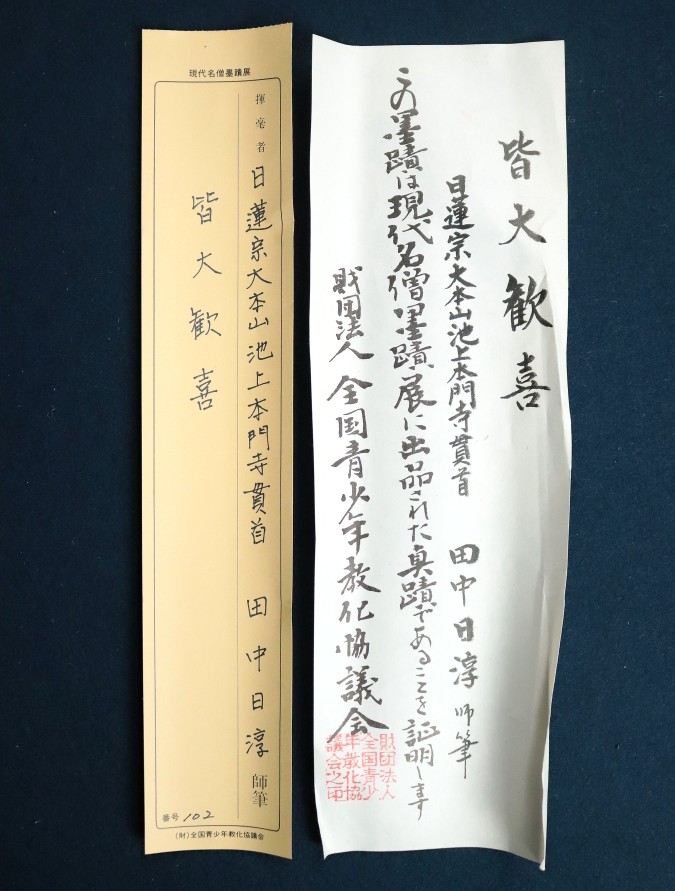 現代名僧墨蹟展
揮毫者 日蓮宗大本山池上本門寺貫首 田中日淳 師筆
皆大歓喜
番号 102
(財)全国青少年教化協議会
皆大歓喜
日蓮宗大本山池上本門寺貫首 田中日淳 師筆
この墨蹟は現代名僧墨蹟展に出品された真蹟であることを証明します
財団法人 全国青少年教化協議会
財団法人
全国青少
年教化協
議会之印